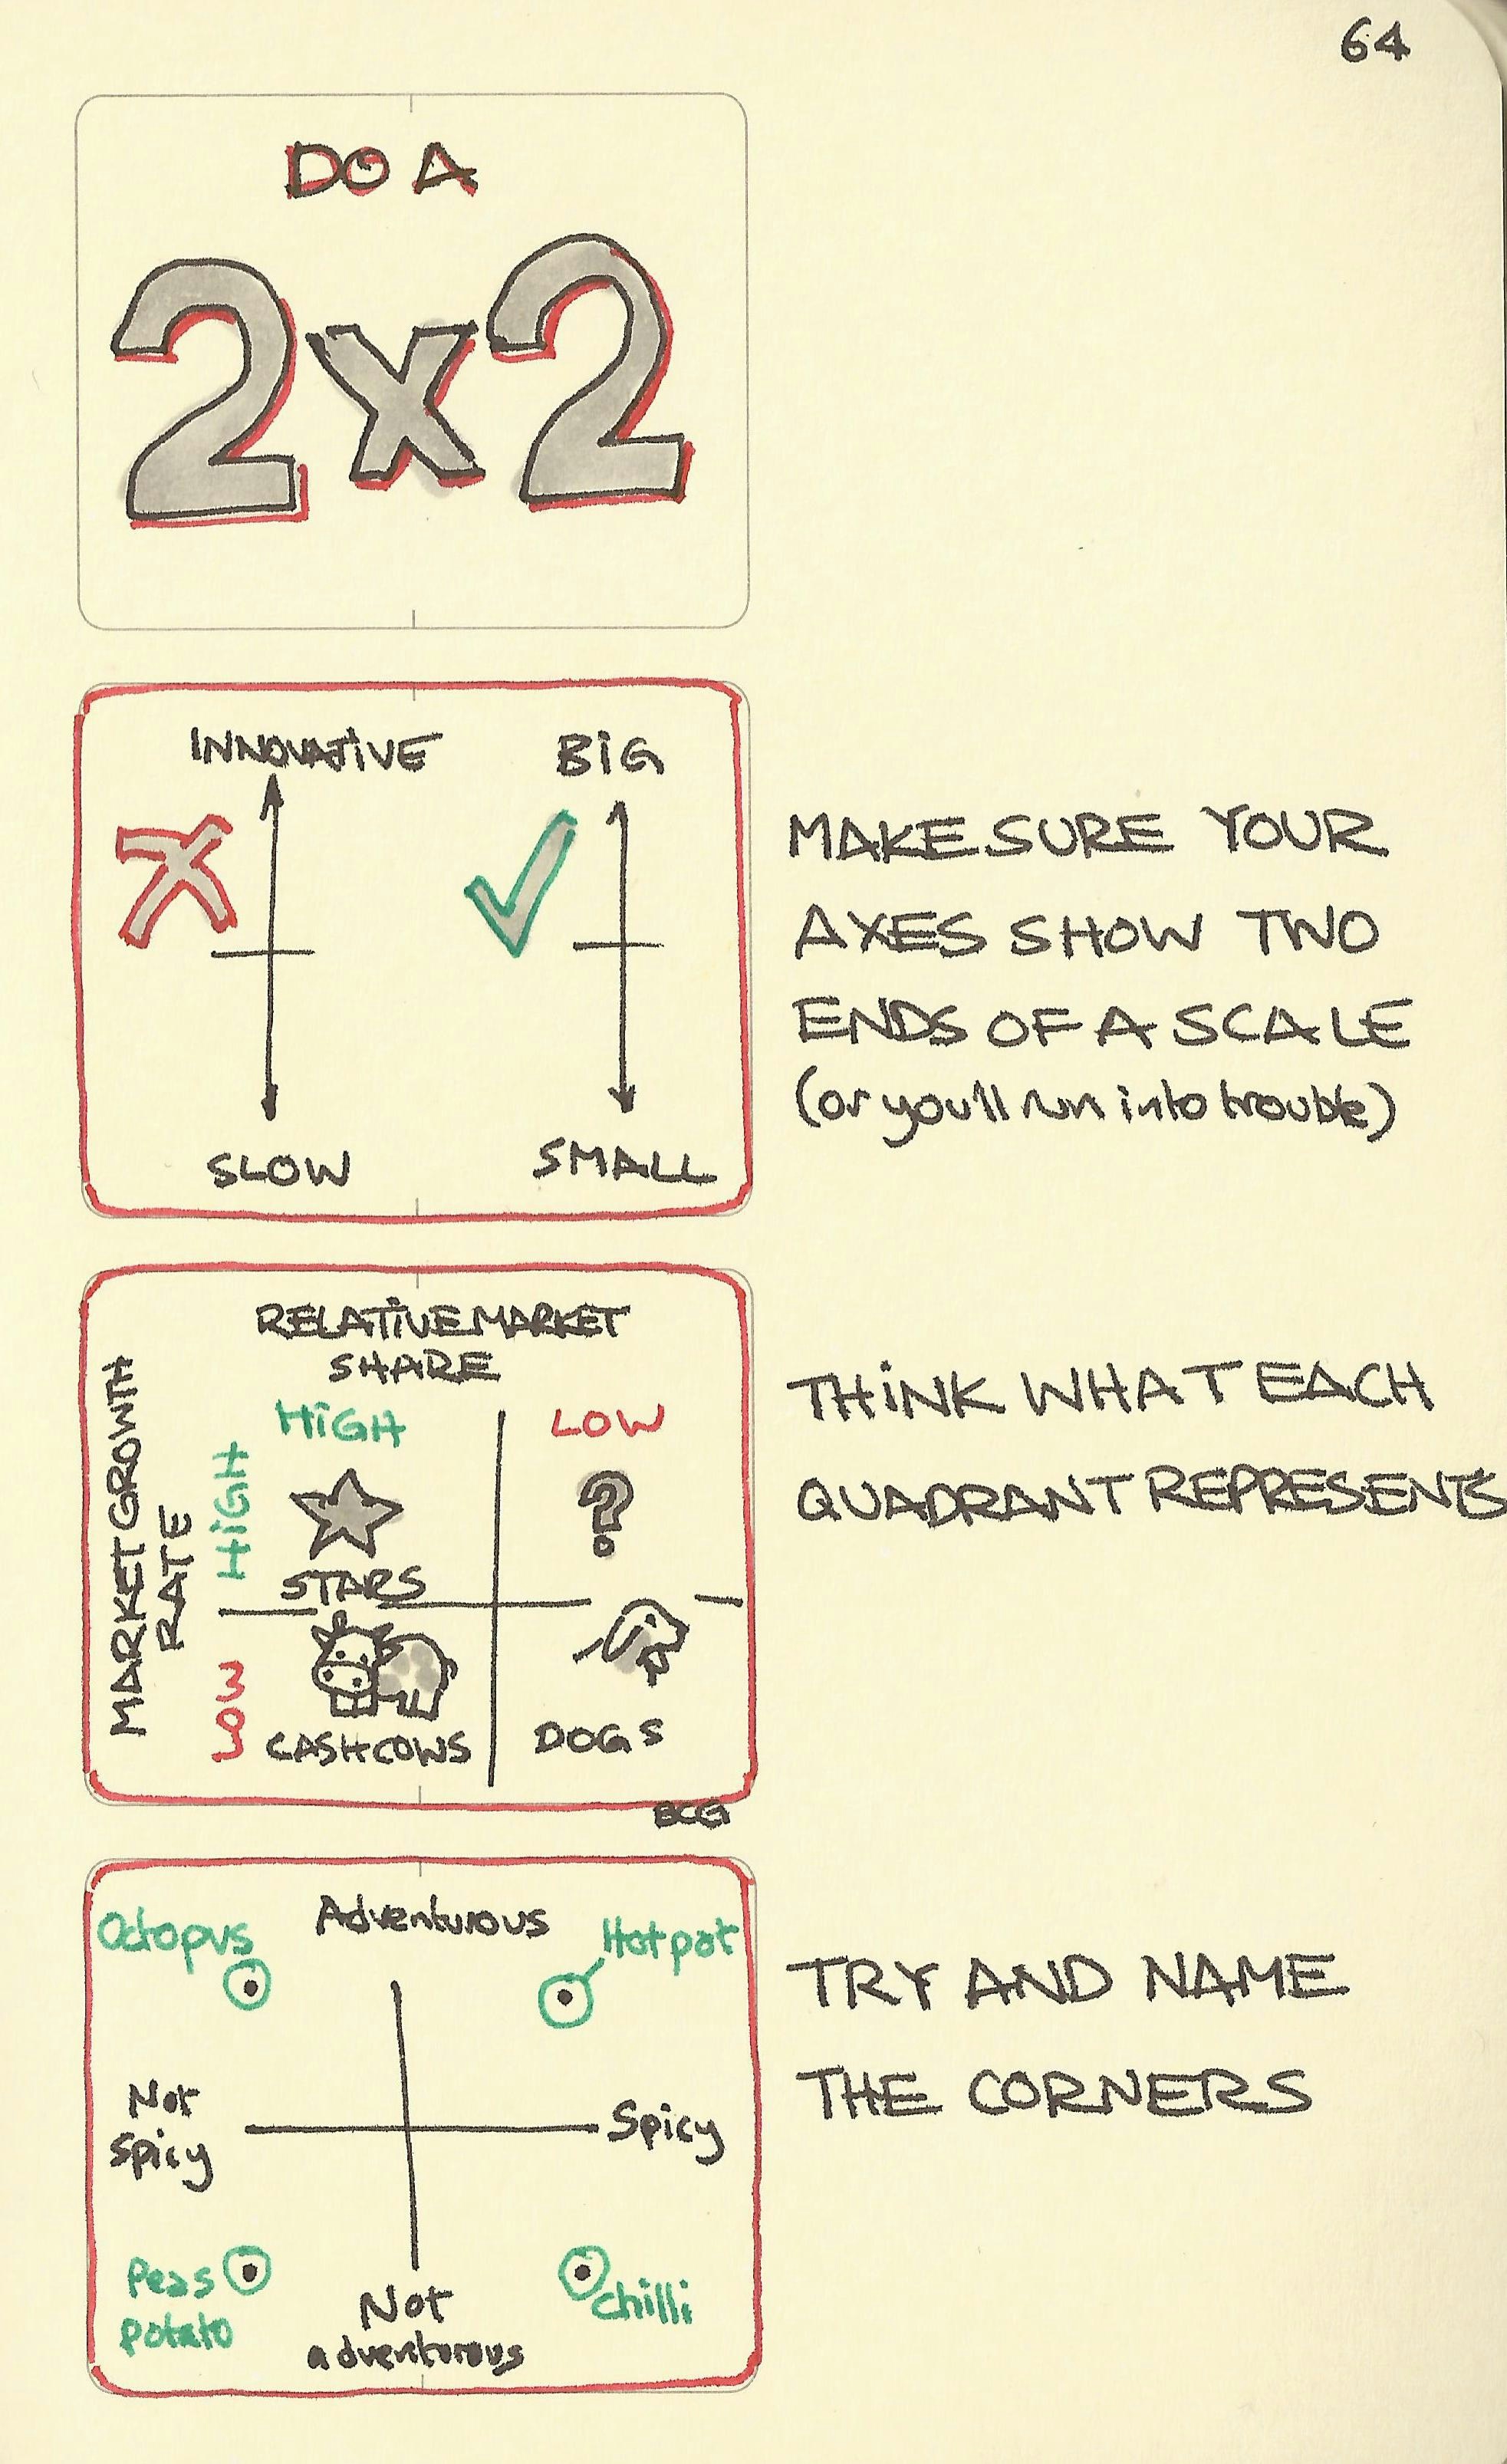 64
DO A
2x2
INNOVATIVE
BIG
SLOW
SMALL
MAKE SURE YOUR
AXES SHOW TWO
ENDS OF A SCALE
(or you'll run into trouble)
RELATIVE MARKET
SHARE
HIGH
LOW
MARKET GROWTH
RATE
HIGH
LOW
?
STARS
CASH COWS
DOGS
BCG
THINK WHAT EACH
QUADRANT REPRESENTS
Octopus
Adventurous
Hotpot
Not
spicy
Spicy
Peas
potato
Not
adventurous
chilli
TRY AND NAME
THE CORNERS